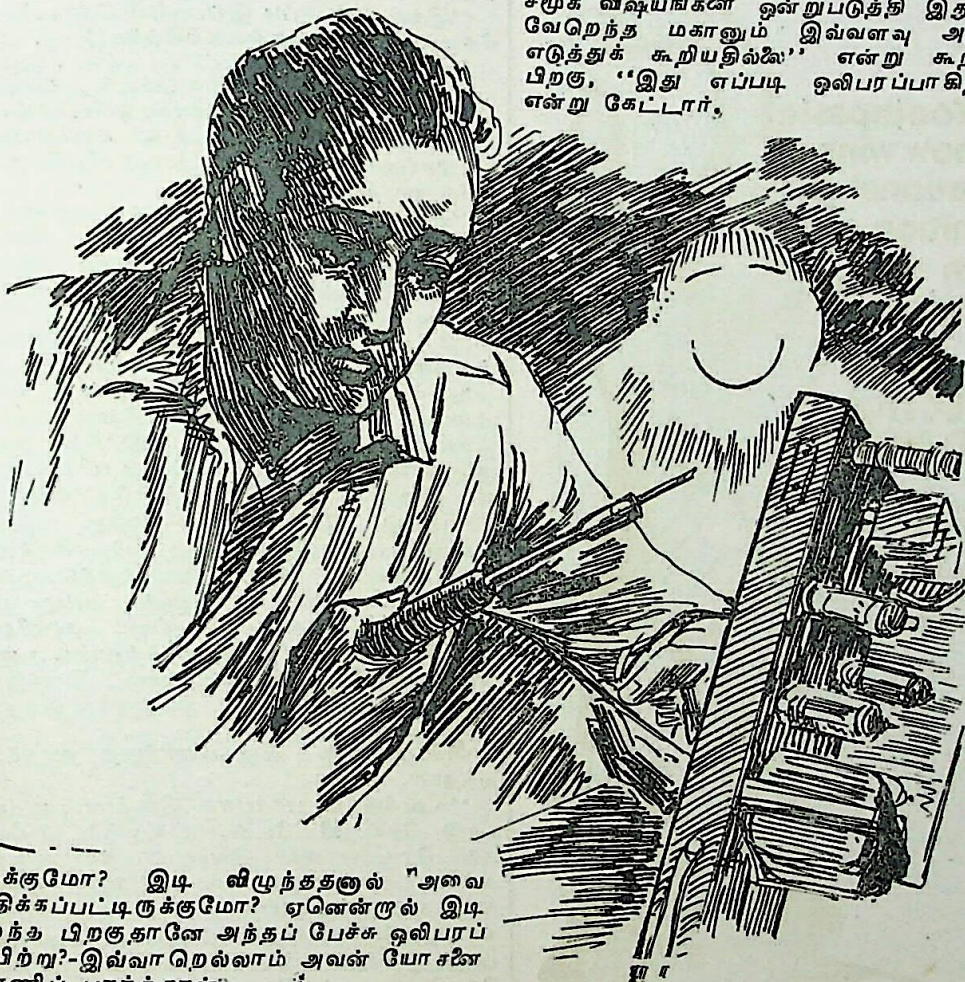 சமூக விஷயங்களை ஒன்றுபடுத்தி
வேறெந்த மகானும் இவ்வளவு
எடுத்துக் கூறியதில்லை'' என்று
பிறகு, ''இது எப்படி
என்று கேட்டார்.
க்குமோ? இடி விழுந்ததனால் "அவை
திக்கப்பட்டிருக்குமோ? ஏனென்றால் இடி
ந்த பிறகுதானே அந்தப் பேச்சு ஒலிபரப்
பிற்று?-இவ்வாறெல்லாம் அவன் யோசனை